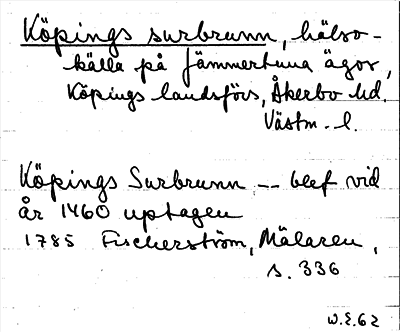 Köpings surbrunn, hälso-
källa på Jämmertuna ägor,
Köpings landsförs, Åkerbo hd.
Västm. l.
Köpings Surbrunn -- blef vid
år 1460 uptagen
1785 Fischerström, Mälaren,
s. 336
W.E. 62